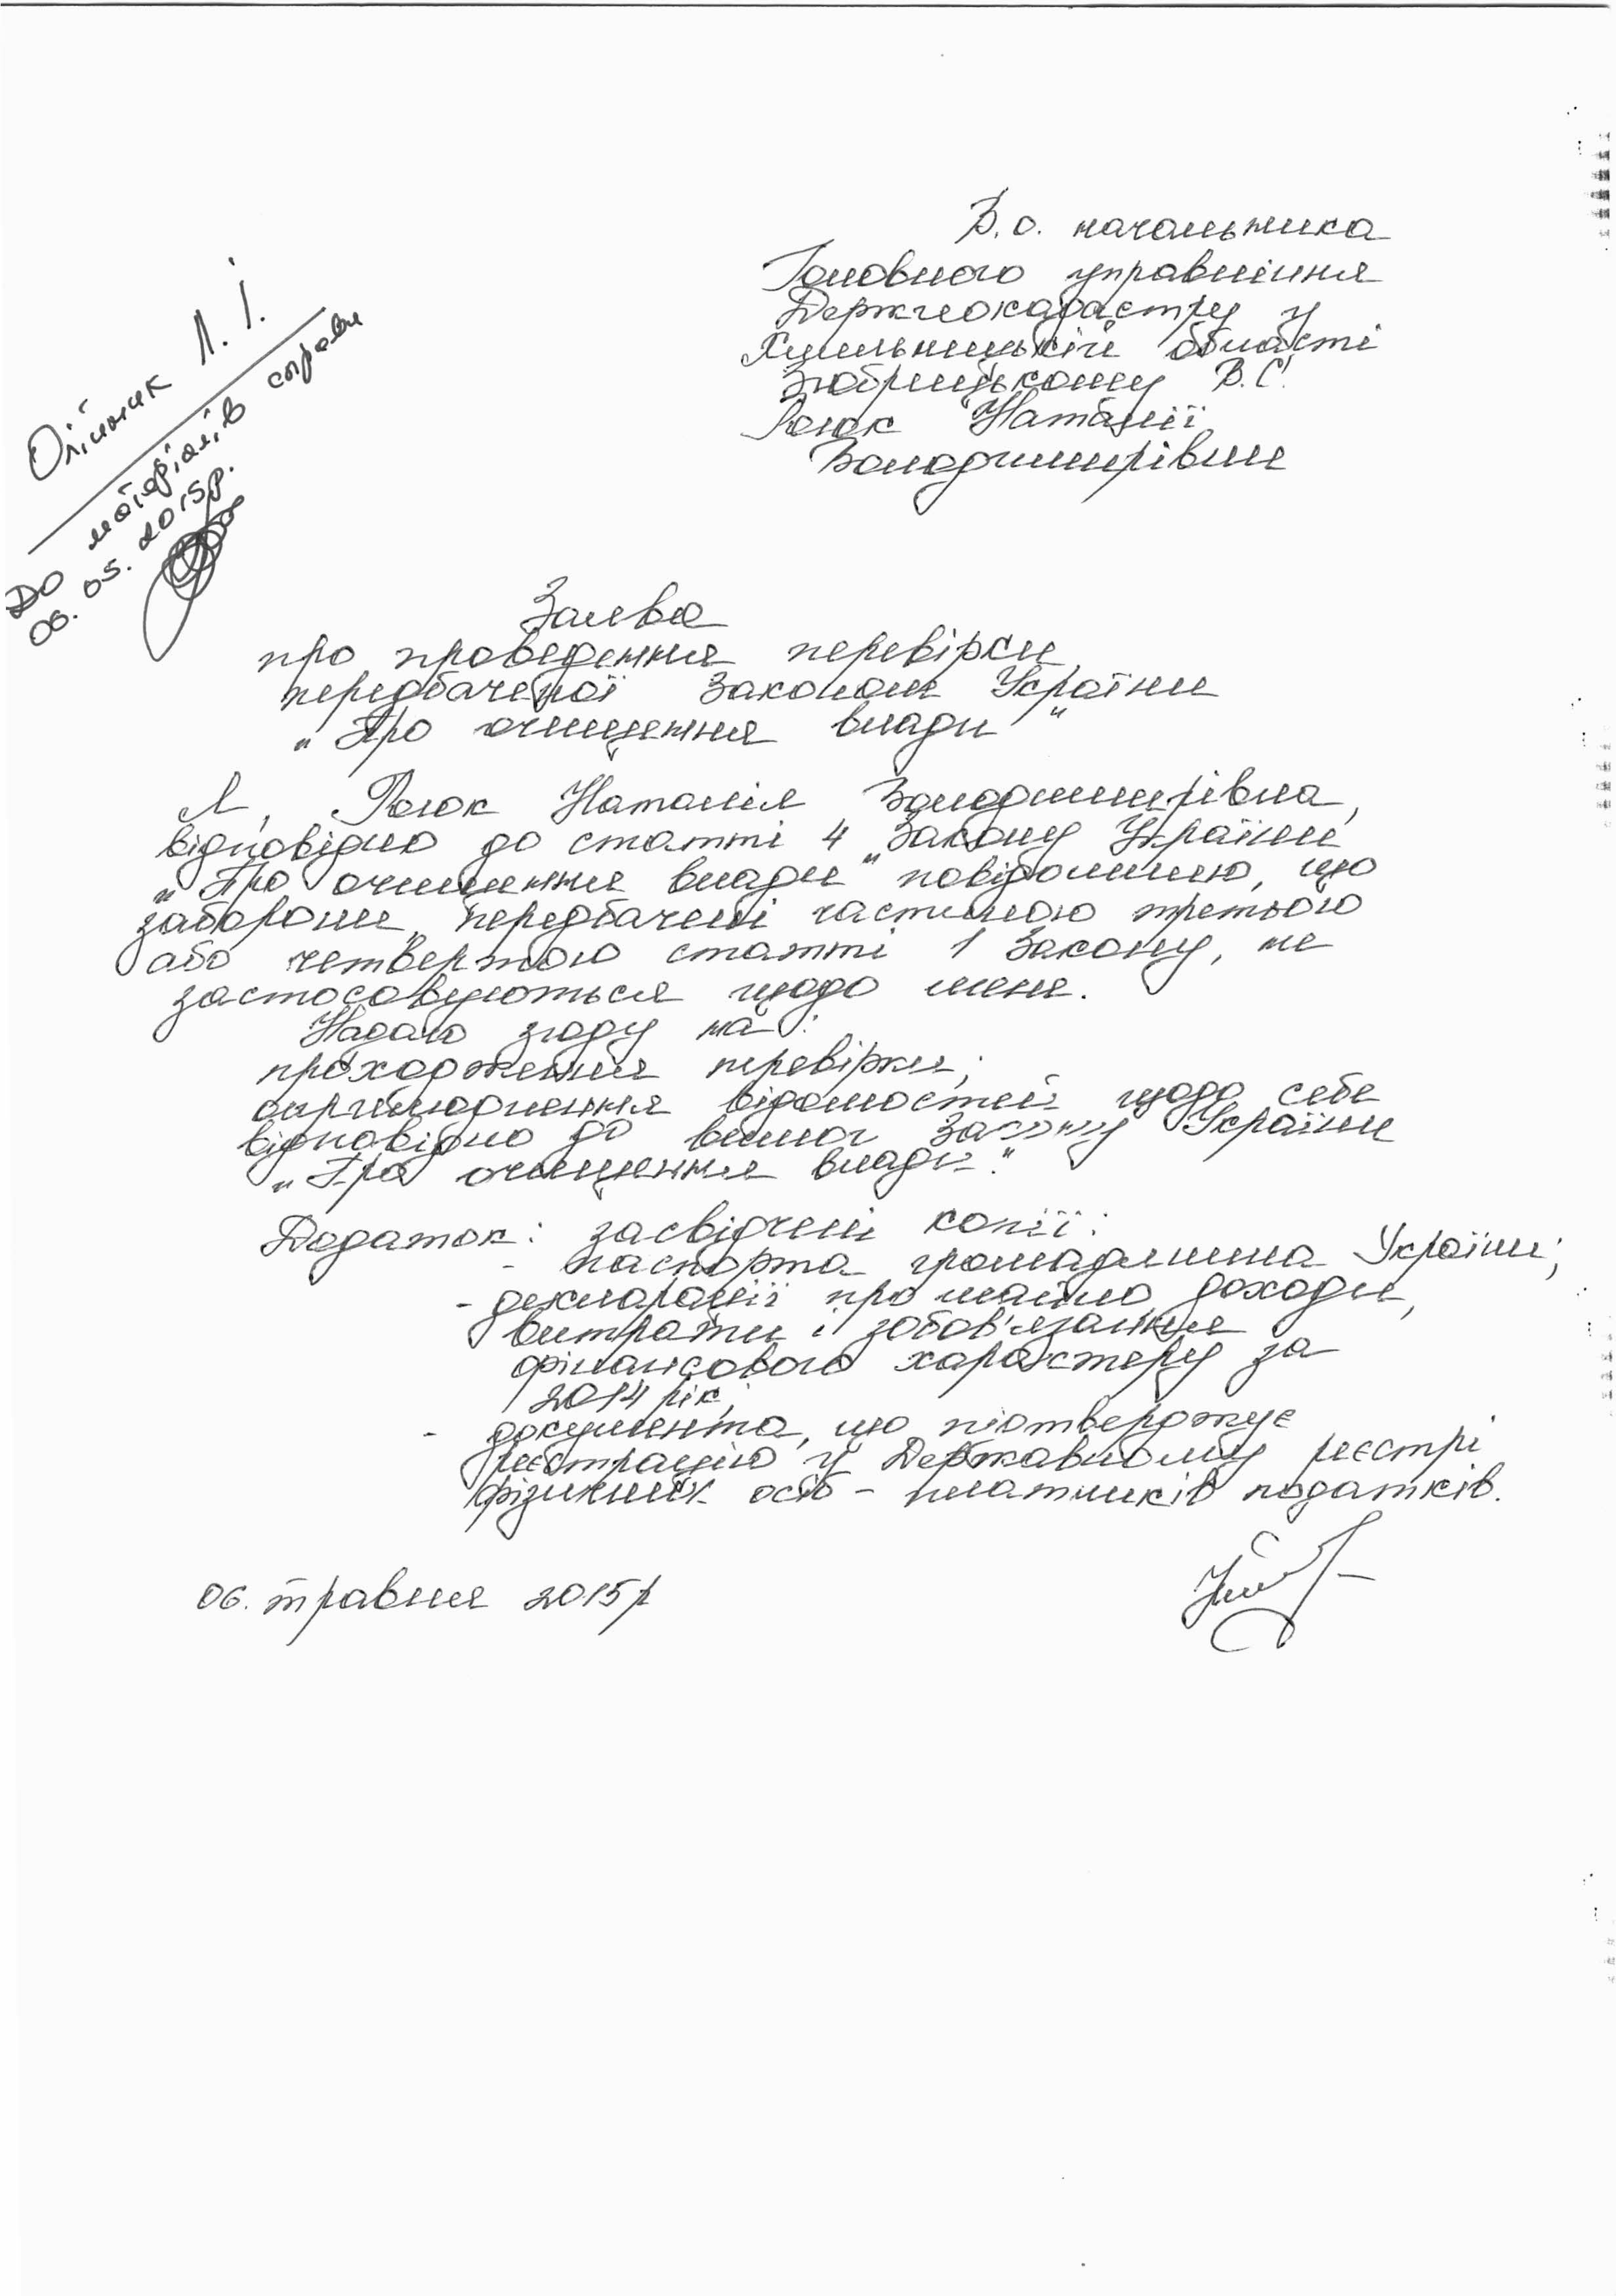 В.о. начальника
Головного управління
Держгеокадастру у
Хмельницькій області
В.С.
Наталії
Володимирівни
Олійник Л. І.
До матеріалів справи
06. 05. 2015р.
Заява
про проведення перевірки,
передбаченої Законом України
„Про очищення влади"
Я, Наталія Володимирівна,
відповідно до статті 4 Закону України
„Про очищення влади" повідомляю, що
заборони, передбачені частиною третьою
або четвертою статті 1 Закону, не
застосовуються щодо мене.
Надаю згоду на:
проходження перевірки;
оприлюднення відомостей щодо себе
відповідно до вимог Закону України
„Про очищення влади".
Додаток: засвідчені копії:
- паспорта громадянина України;
- декларації про майно, доходи,
витрати і зобов'язання
фінансового характеру за
2014 рік;
- документа, що підтверджує
реєстрацію у Державному реєстрі
фізичних осіб - платників податків.
06. травня 2015р